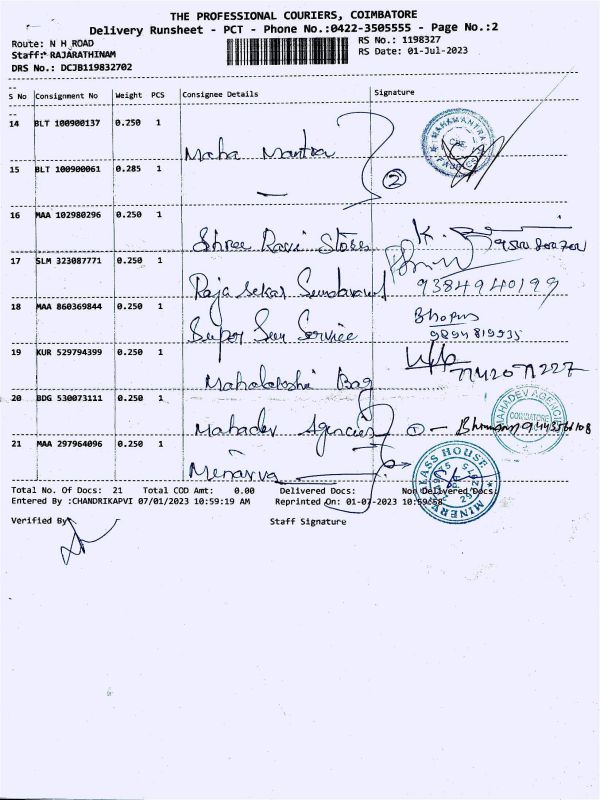 THE PROFESSIONAL COURIERS, COIMBATORE
Delivery Runsheet - PCT - Phone No.:0422-3505555 - Page No.:2
Route: N H ROAD
RS No.: 1198327
Staff: RAJARATHINAM
RS Date: 01-Jul-2023
DRS No.: DCJB119832702
S No Consignment No Weight PCS Consignee Details Signature
14 BLT 100900137 0.250 1
Maha Mantra
MAHAMANTRA
CBE
15 BLT 100900061 0.285 1
2
16 MAA 102980296 0.250 1
Shree Ravi Stores K.
17 SLM 323087771 0.250 1
Raja Sekar 9384940199
18 MAA 860369844 0.250 1
Super Sun Service
9894819535
19 KUR 529794399 0.250 1
Mahalakshi Bag
20 BDG 530073111 0.250 1
Mahadev Agencies 1 -
MAHADEV AGENCIES
COIMBATORE
21 MAA 297964096 0.250 1
Menarva
KASS HOUSE
Total No. Of Docs: 21 Total COD Amt: 0.00 Delivered Docs: Non Delivered Docs:
Entered By :CHANDRIKAPVI 07/01/2023 10:59:19 AM Reprinted On: 01-07-2023
Verified By Staff Signature